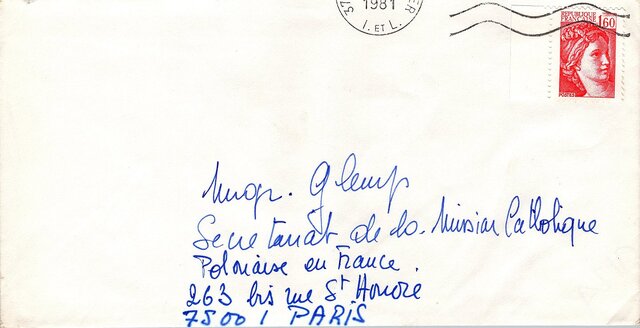 37
1981
ER
I. ET L.
REPUBLIQUE
FRANÇAISE
1,60
Mngr. Glemp
Secretariat de la Mission Catholique
Polonaise en France.
263 bis rue St Honore
75001 PARIS